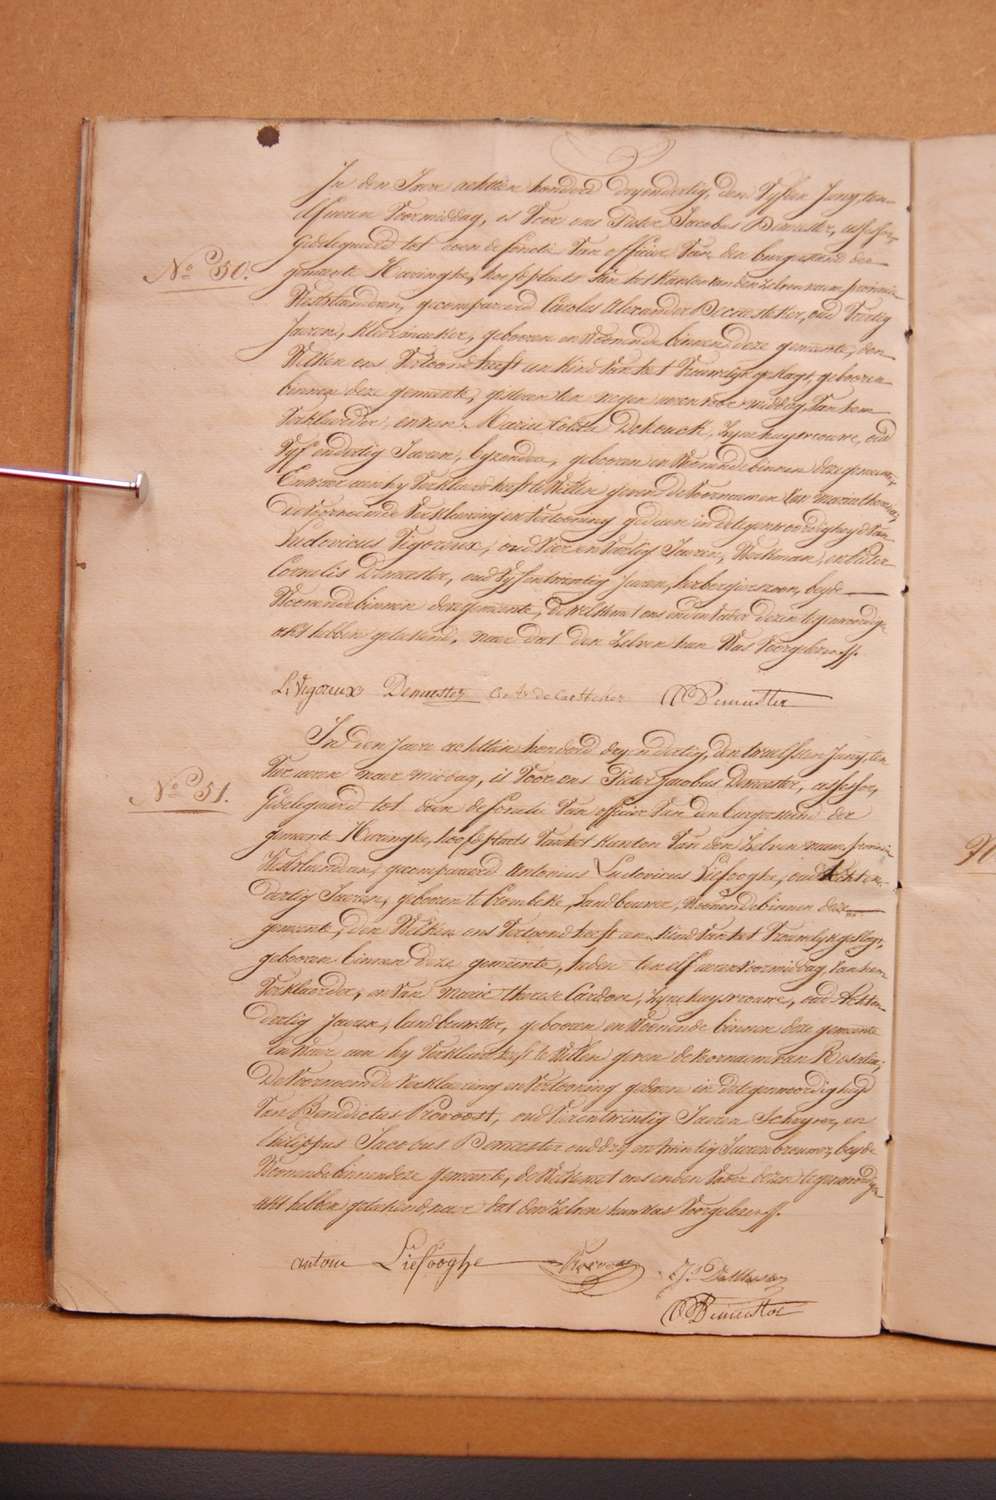 In den Jaere achttien honderd dryendertig, den Vyfden Juny, ten
Elf uren Voormiddag, is Voor ons Pieter Jacobus Demeester, assessor,
Gedelegueerd tot doen de fonctie Van officier Van den burgerstand der
N.º 50.
gemeente Haringhe, hoofdplaets Van het Kanton van den zelven naem, provincie
Westvlaenderen, gecompareerd Carolus Alexander Decaesteker, oud Veertig
Jaeren, kleermaeker, gebooren en Woonende binnen deze gemeente, den
Welken ons Vertoond heeft een kind Van het Vrouwlyk geslagt, gebooren
binnen deze gemeente, gisteren ten negen uren voor middag, Van hem
Verklaerder, en van Maria Coleta Dehouck, zyne huysvrouwe, oud
Vyf en dertig Jaeren, byzondere, gebooren en Woonende binnen deze gemeente,
En waer aen hy Verklaerd heeft te Willen geven de Voornaemen Van Maria Theresia,
de Voornoemde Verklaering en Vertooning gedaen in de tegenwoordigheyd Van
Ludovicus Vigoreux, oud Vier en Veertig Jaeren, Werkman, en Pieter
Cornelis Demeester, oud Vyf en twintig Jaeren, herbergierszoon, beyde
Woonende binnen deze gemeente, de welke met ons en den Vader dezen tegenwoordige
akt hebben geteekend, naer dat den zelven hun Was Voorgeleezen.
L. Vigoreux Demeester C. A. de Caesteker P. J. Demeester
In den Jaere achttien honderd dryendertig, den twaelfsten Juny, ten
Vier uren naer middag, is Voor ons Pieter Jacobus Demeester, assessor,
N.º 51.
Gedelegueerd tot doen de fonctie Van officier Van den burgerstand der
gemeente Haringhe, hoofdplaets Van het Kanton Van den zelven naem, provincie
Westvlaenderen, gecompareerd Antonius Ludovicus Liefooghe, oud Achten
dertig Jaeren, gebooren te Crombeke, landbouwer, Woonende binnen deze
gemeente, den Welken ons Vertoond heeft een kind Van het Vrouwlyk geslagt,
gebooren binnen deze gemeente, heden ten elf uren voormiddag, Van hem
Verklaerder, en Van Marie Therese Cardoen, zyne huysvrouwe, oud Achten
dertig Jaeren, landbouwster, gebooren en Woonende binnen deze gemeente
En Waer aen hy Verklaerd heeft te Willen geven de voornaem van Rosalia,
De Voornoemde Verklaering en Vertooning gedaen in de tegenwoordigheyd
Van Benedictus Provoost, oud Vier en twintig Jaeren Schryver, en
Philippus Jacobus Demeester oud dry en twintig Jaeren brouwer, beyde
Woonende binnen deze Gemeente, de Welke met ons en den Vader dezen tegenwoordige
akt hebben geteekend, naer dat den Zelven hun Was Voorgeleezen.
antone Liefooghe Provoost P. J. DeMeester
P. J. Demeester